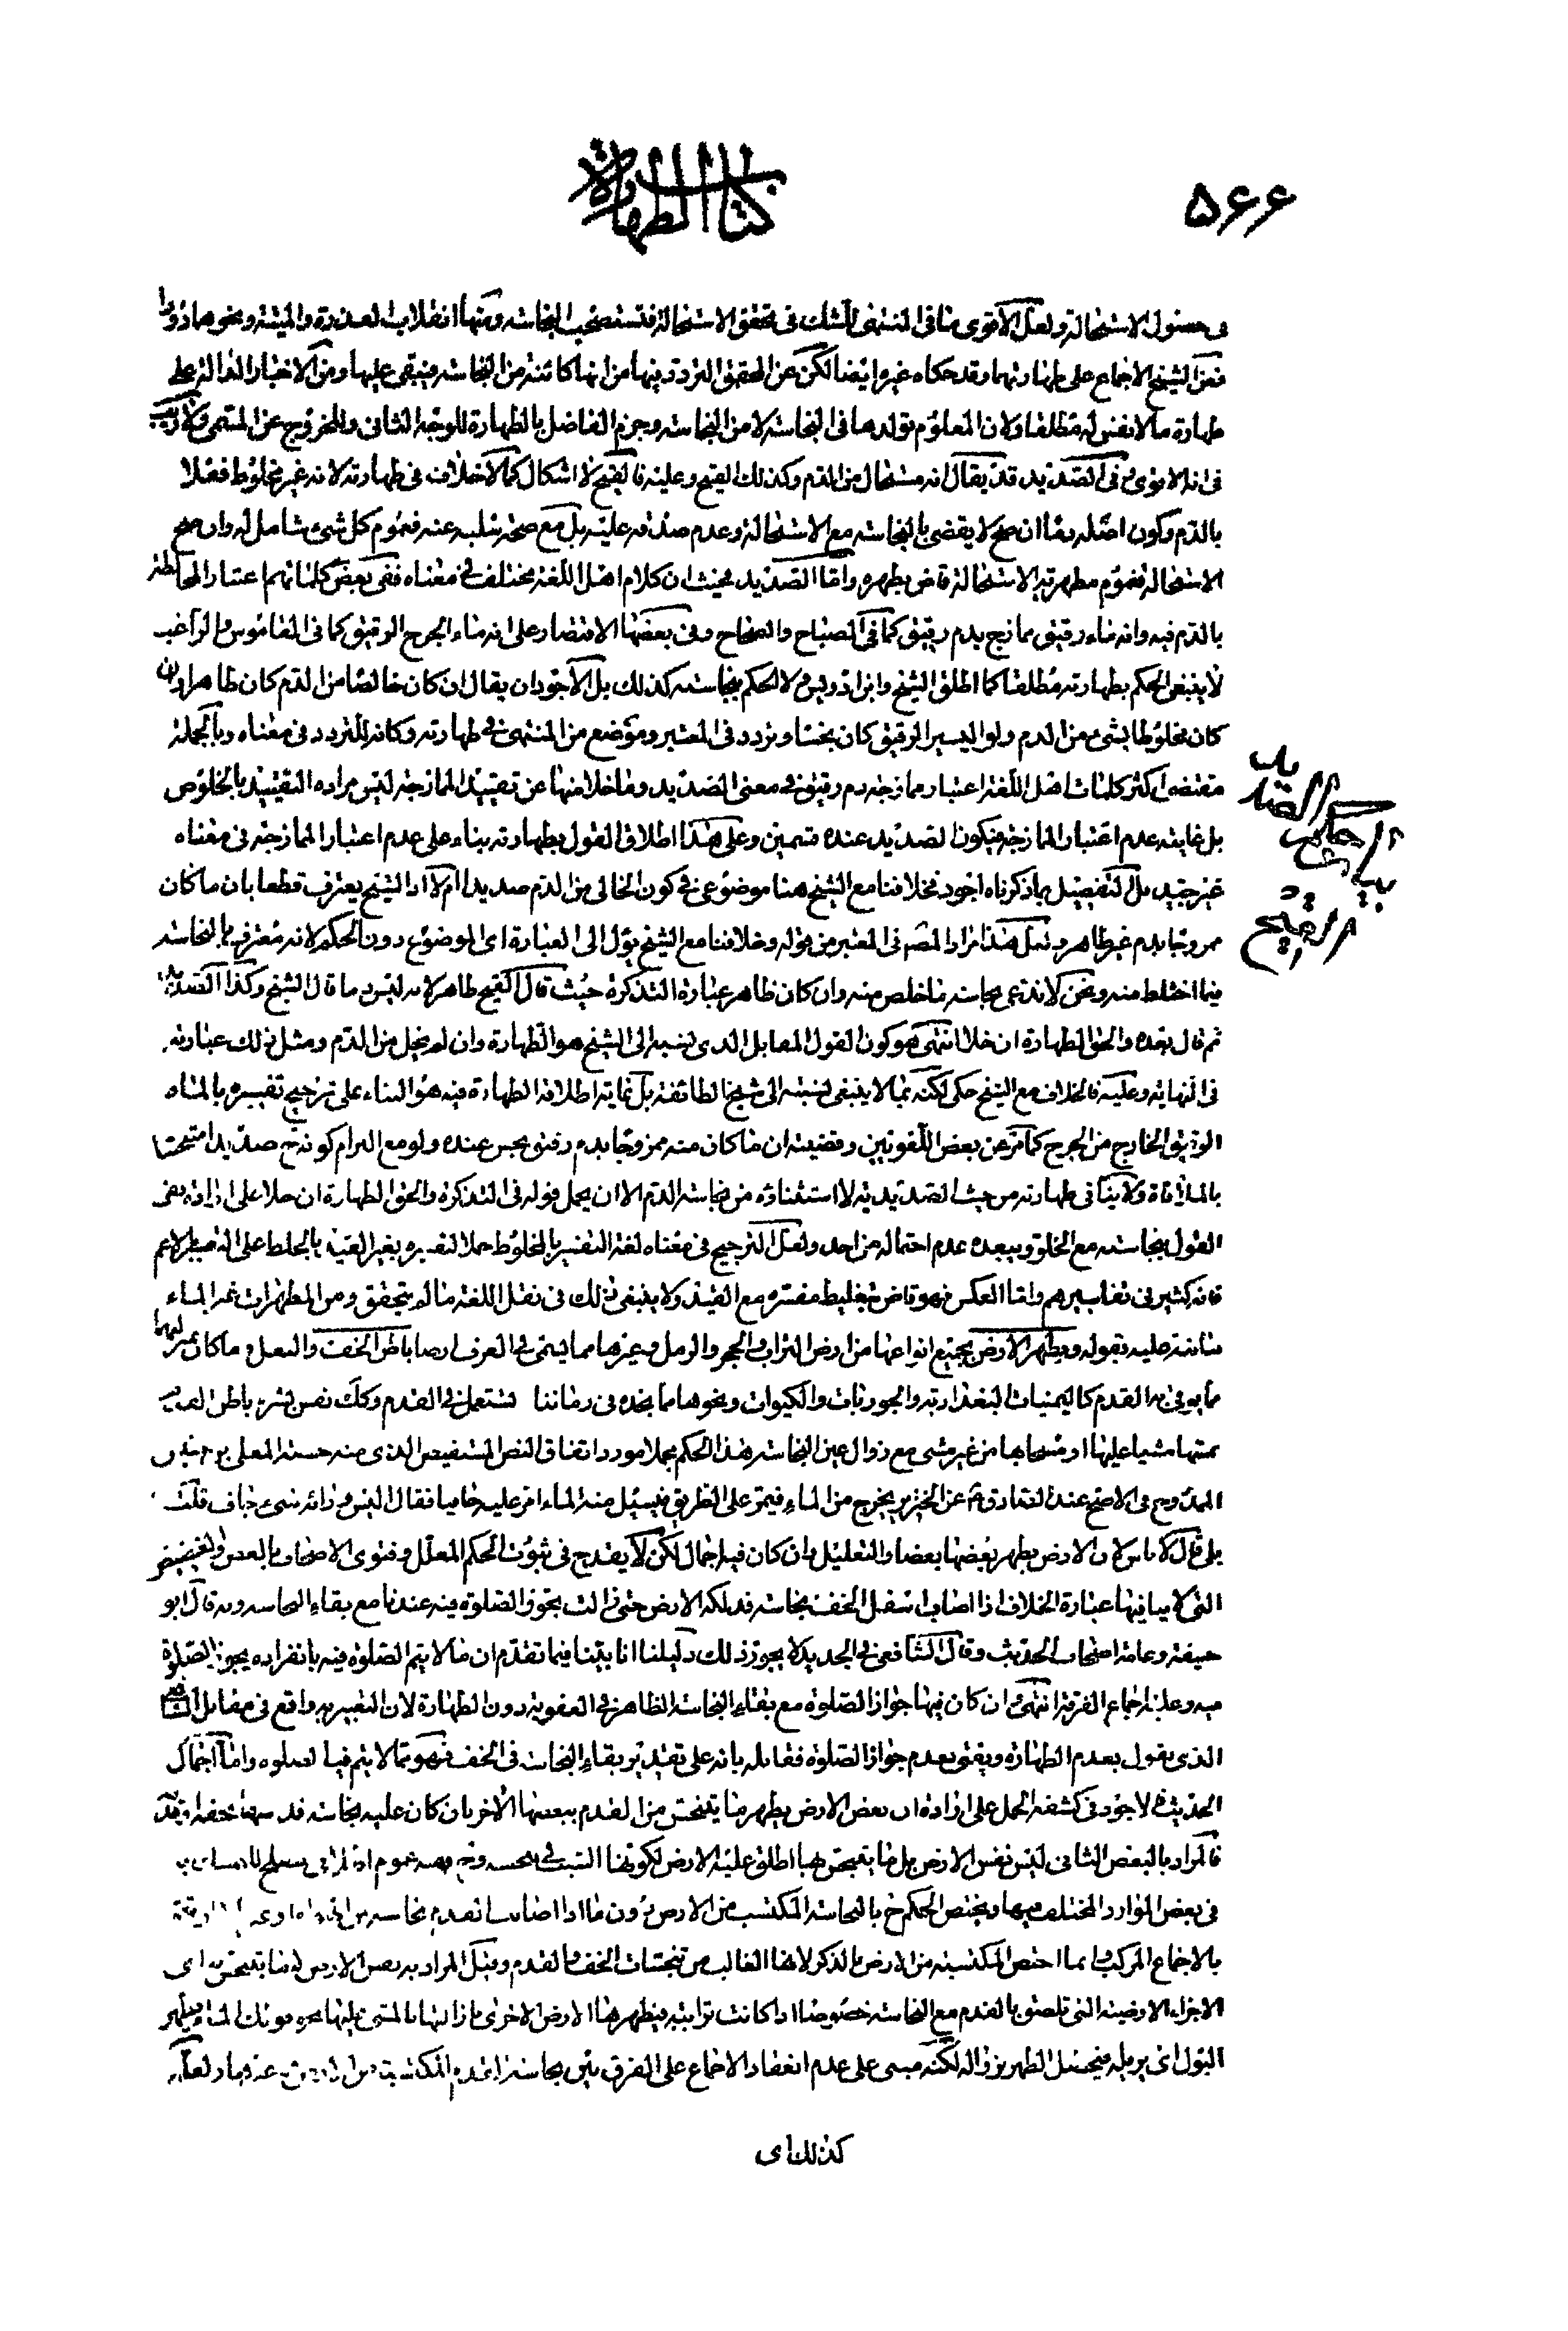 ٥٦٦
كتاب الطهارة
فى حصول الاستحالة ولعل الاقوى ما فى المنتهى للشك فى تحقق الاستحالة فتستصحب النجاسة ومنها انقلاب العذرة والميتة ونحوهما دودا
فعن الشيخ الاجماع على طهارتهما وقد حكاه غيره ايضا لكن عن المحقق التردد فيها من انها كائنة من النجاسة فيبقى عليها ومن الاخبار الدالة على
طهارة ما لا نفس له مطلقا ولان المعلوم تولدها فى النجاسة لا من النجاسة وجزم الفاضل بالطهارة للوجه الثانى وللخروج عن المسمى ولا ريب
فى انه الاقوى وفى الصديد قد يقال انه مستحال من الدم وكذلك القيح وعليه فالقيح لا اشكال كما لا خلاف فى طهارته لانه غير مخلوط فعلا
بالدم وكون اصله دما ان صح لا يقضى بالنجاسة مع الاستحالة وعدم صدقه عليه بل مع صحة سلبه عنه فعموم كل شىء شامل له وان صح
الاستحالة فعموم مطهرية الاستحالة قاض بطهره واما الصديد فحيث ان كلام اهل اللغة مختلف فى معناه ففى بعض كلماتهم اعتبار المخالطة
بالدم فيه وانه ماء رقيق ممازج بدم رقيق كما فى المصباح والصحاح وفى بعضها الاقتصار على انه ماء الجرح الرقيق كما فى القاموس والراغب
لا ينبغى الحكم بطهارته مطلقا كما اطلق الشيخ وابن ادريس ولا الحكم بنجاسته كذلك بل الاجود ان يقال ان كان خالصا من الدم كان طاهرا وان
كان مخلوطا بشىء من الدم ولو اليسير الرقيق كان نجسا وتردد فى المعتبر وموضع من المنتهى فى طهارته وكانه للتردد فى معناه وبالجملة
مقتضى اكثر كلمات اهل اللغة اعتبار ممازجة دم رقيق فى معنى الصديد وما خلا منها عن تقييد الممازجة ليس مراده التقييد بالخلوص
بل غايته عدم اعتبار الممازجة فيكون الصديد عنده قسمين وعلى هذا اطلاق القول بطهارته بناء على عدم اعتبار الممازجة فى معناه
غير جيد بل التفصيل بما ذكرناه اجود فخلافنا مع الشيخ هنا موضوعى فى كون الخالى من الدم صديدا ام لا اذ الشيخ يعترف قطعا بان ما كان
ممزوجا بدم غير طاهر ولعل هذا مراد المصنف فى المعتبر من قوله وخلافنا مع الشيخ يؤل الى العبارة اى الموضوع دون الحكم لانه معترف بالنجاسة
فيما اختلط منه ونحن لا ندعى نجاسة ما خلص منه وان كان ظاهر عبارة التذكرة حيث قال القيح طاهر لانه ليس بدم قال الشيخ وكذا الصديد
ثم قال بعده والحق الطهارة ان خلا انتهى هو كون القول المقابل الذى نسبه الى الشيخ هو الطهارة وان لم يخل من الدم ومثل ذلك عبارته
فى النهاية وعليه فالخلاف مع الشيخ حكمى لكنه مما لا ينبغى نسبته الى شيخ الطائفة بل غاية اطلاقه الطهارة فيه هو البناء على ترجيح تفسيره بالماء
الرقيق الخارج من الجرح كما مر عن بعض اللغويين وقضيته ان ما كان منه ممزوجا بدم رقيق نجس عنده ولو مع التزام كونه ح صديدا متنجسا
بالملاقاة ولا ينافى طهارته من حيث الصديدية لا استثناؤه من نجاسة الدم الا ان يحمل قوله فى التذكرة والحق الطهارة ان خلا على ارادة نفى
القول بنجاسته مع الخلو ويبعده عدم احتماله من احد ولعل الترجيح فى معناه لغة التفسير بالمخلوط حملا لتفسيره بغير القيد بالخلط على التفسير بالاعم
فانه كثير فى تفاسيرهم واما العكس فهو قاض بتغليط مفسره مع القيد ولا ينبغى ذلك فى نقل اللغة ما لم يتحقق ومن المطهرات غير الماء
ما نبه عليه بقوله وتطهر الارض بجميع انواعها من ارض التراب والحجر والرمل وغيرها مما يسمى فى العرف ارضا باطن الخف والنعل وما كان بمنزلتهما
مما يوقى به القدم كاليمنيات البغدادية والجوربات والكيوات ونحوها مما يتخذ فى زماننا لتستعمل فى القدم وكذا نفس بشرة باطن القدم
بمسها مشيا عليها او مسحا بها من غير مشى مع زوال عين النجاسة هذا الحكم مجملا مورد اتفاق النص المستفيض الذى منه حسنة المعلى بن خنيس
الممدوح فى الاصح عند الصادق ع عن الخنزير يخرج من الماء فيمر على الطريق فيسيل منه الماء امر عليه حافيا فقال اليس ورائه شىء جاف قلت
بلى قال لا باس ان الارض يطهر بعضها بعضا والتعليل وان كان فيه اجمال لكن لا يقدح فى ثبوت الحكم المعلل وفتوى الاصحاب
التى لا ينافيها عبارة الخلاف اذا اصاب اسفل الخف نجاسة فدلكه الارض حتى زالت تجوز الصلوة فيه عندنا مع بقاء النجاسة وبه قال ابو
حنيفة وعامة اصحاب الحديث وقال الشافعى فى الجديد لا يجوز ذلك دليلنا انا بينا فيما تقدم ان ما لا يتم الصلوة فيه بانفراده يجوز الصلوة
فيه وعليه اجماع الفرقة انتهى وان كان فيها جواز الصلوة مع بقاء النجاسة الظاهر فى العفوية دون الطهارة لان التعبير به واقع فى مقابل الشافعى
الذى يقول بعدم الطهارة ويفتى بعدم جواز الصلوة فقابله بانه على تقدير بقاء النجاسة فى الخف فهو مما لا يتم فيه الصلوة واما اجمال
الحديث فالاجود فى كشفه الحمل على ارادة ان بعض الارض يطهر ما يتنجس من القدم ببعضها الآخر بان كان عليه نجاسة
فالمراد بالبعض الثانى ليس نفس الارض بل ما يتنجس بها اطلق عليه الارض لكونها السبب فى تنجسه
فى بعض الموارد المختلف فيها ويختص الحكم ح بالنجاسة المكتسبة من الارض دون ما اذا اصابت القدم نجاسة من
بالاجماع المركب وانما اختص المكتسبة من الارض بالذكر لانها الغالب من تنجسات الخف والقدم وقيل المراد به بعض الارض
الاجزاء الارضية التى تلصق بالقدم مع النجاسة خصوصا اذا كانت ترابية فيطهرها الارض الاخرى بازالتها بالمشى عليها
البول اى يزيله فيحصل الطهر بزواله لكنه مبنى على عدم انعقاد الاجماع على الفرق بين نجاسة القدم المكتسبة من
كذلك اى
حكم الصديد
القيح